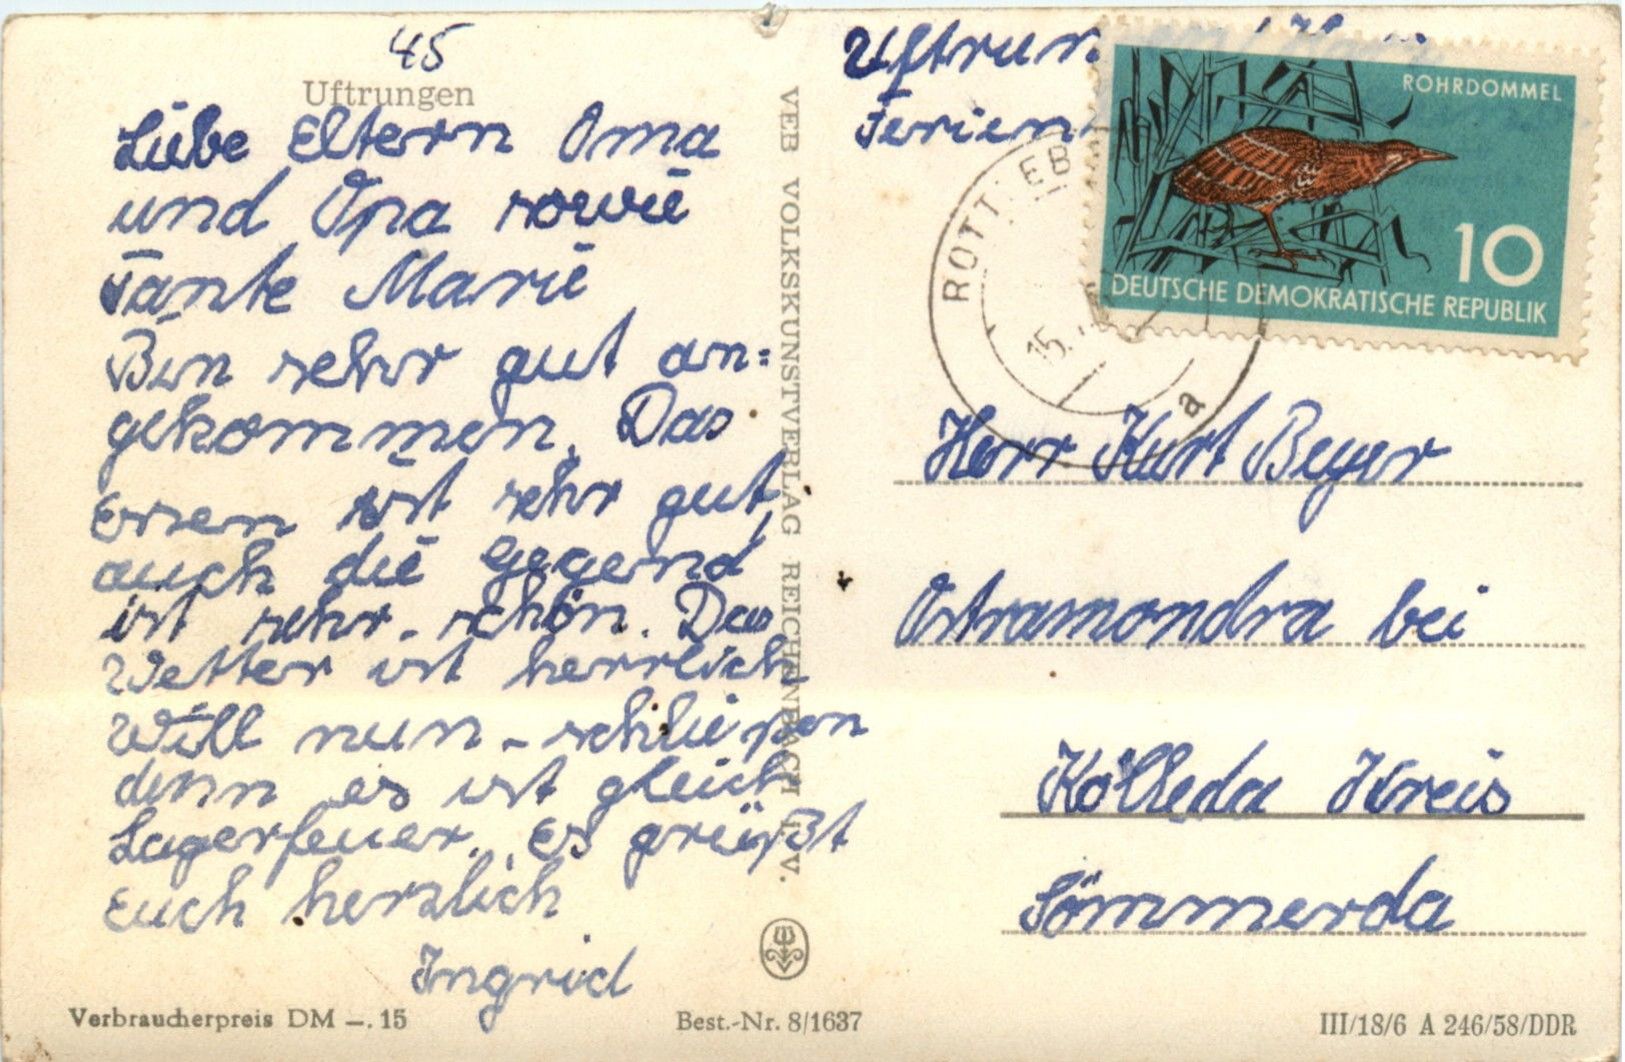 45
Uftrungen
Liebe Eltern Oma
und Opa sowie
Tante Marie
Bin sehr gut an=
gekommen. Das
Essen ist sehr gut,
auch die Gegend
ist sehr schön. Das
Wetter ist herrlich
Will nun schließen
denn es ist gleich
Lagerfeuer. Es grüßt
Euch herzlich
Ingrid
Verbraucherpreis DM —.15
Best.-Nr. 8/1637
VEB VOLKSKUNSTVERLAG REICHENBACH I. V.
Uftrun
Ferien
ROHRDOMMEL
10
DEUTSCHE DEMOKRATISCHE REPUBLIK
ROTTLEB
15.
a
Herr Kurt Beyer
Ostramondra bei
Kölleda Kreis
Sömmerda
III/18/6 A 246/58/DDR